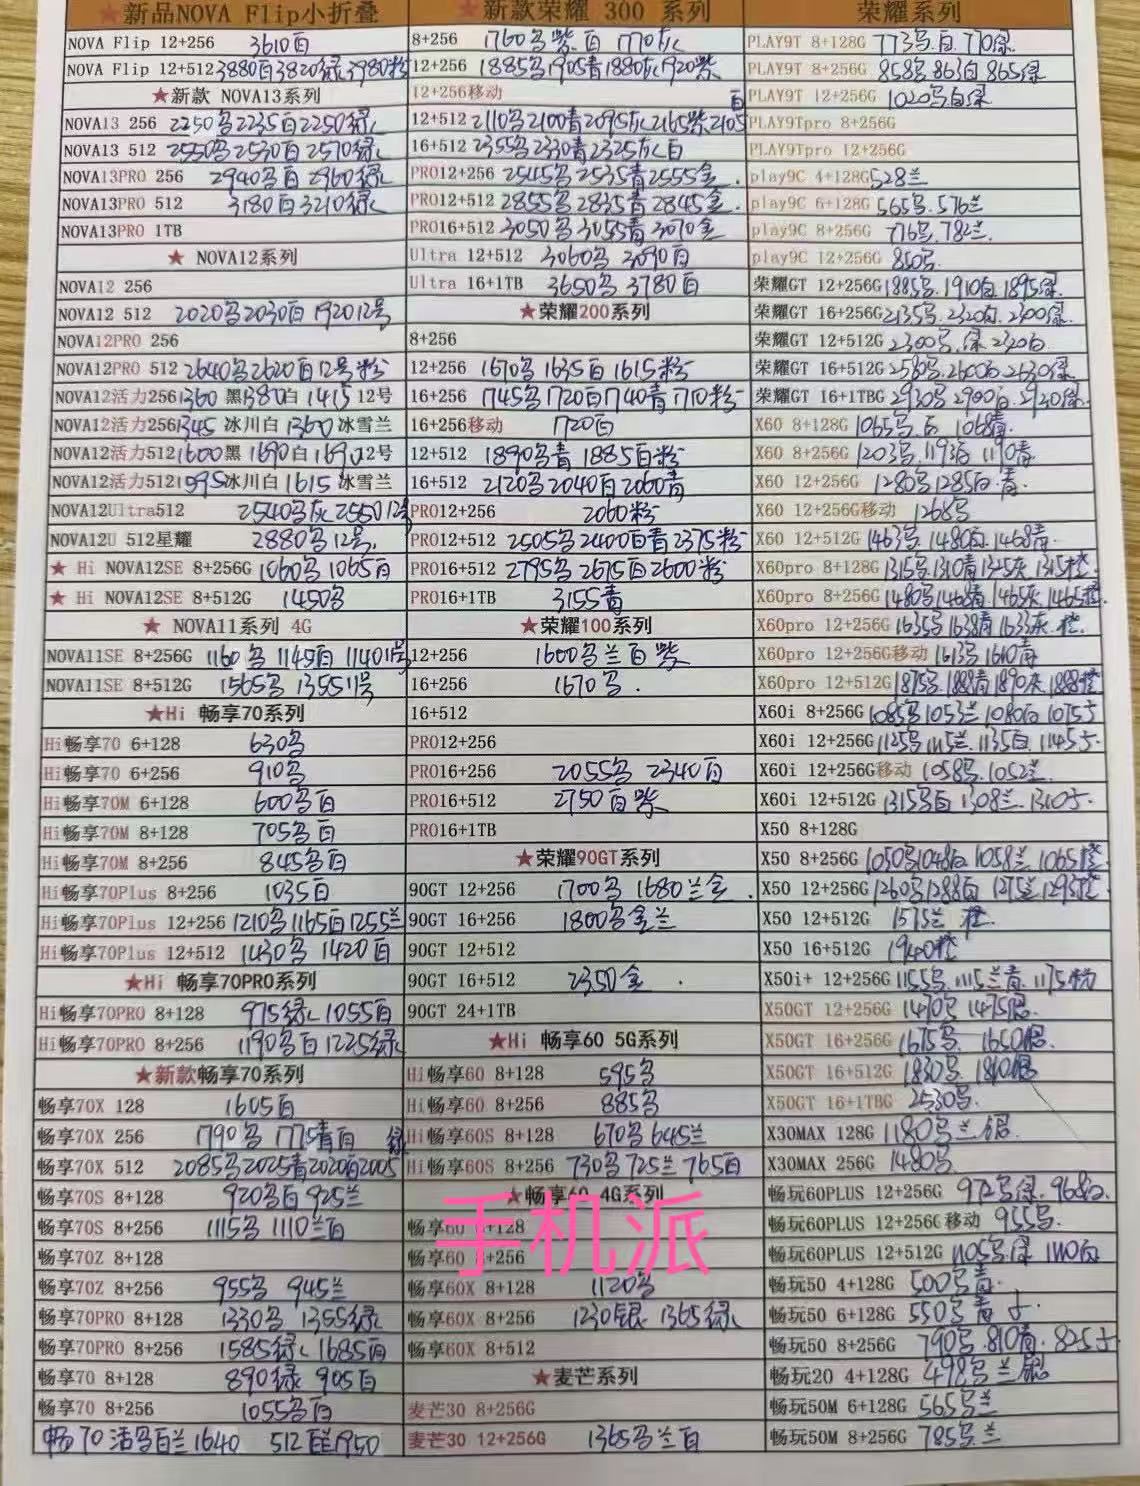 ★新品NOVA Flip小折叠
NOVA Flip 12+256 3610白
NOVA Flip 12+512 3880白3820绿3980粉
★新款 NOVA13系列
NOVA13 256 2250马2235白2250绿
NOVA13 512 2550马2530白2570绿
NOVA13PRO 256 2940马白2960绿
NOVA13PRO 512 3180白3210绿
NOVA13PRO 1TB
★ NOVA12系列
NOVA12 256
NOVA12 512 2020马2030白1920 12号
NOVA12PRO 256
NOVA12PRO 512 2640马2620白12号粉
NOVA12活力256 1360 黑1380白 1415 12号
NOVA12活力256 1345 冰川白 1360 冰雪兰
NOVA12活力512 1600 黑 1690白
NOVA12活力512 1595冰川白 1615 冰雪兰
NOVA12Ultra512 2540马灰2550 12号
NOVA12U 512星耀 2880马12号
★ Hi NOVA12SE 8+256G 1060马1065白
★ Hi NOVA12SE 8+512G 1450马
★ NOVA11系列 4G
NOVA11SE 8+256G 1160马 1145白 1140 11号
NOVA11SE 8+512G 1565马 1355 11号
★Hi 畅享70系列
Hi畅享70 6+128 630马
Hi畅享70 6+256 910马
Hi畅享70M 6+128 600马白
Hi畅享70M 8+128 705马白
Hi畅享70M 8+256 845马白
Hi畅享70Plus 8+256 1035白
Hi畅享70Plus 12+256 1210马1165白1255兰
Hi畅享70Plus 12+512 1430马 1420白
★Hi 畅享70PRO系列
Hi畅享70PRO 8+128 975绿 1055白
Hi畅享70PRO 8+256 1190马白1225绿
★新款畅享70系列
畅享70X 128 1605白
畅享70X 256 1790马 1775青白 绿
畅享70X 512 2085马2025青2020白2005
畅享70S 8+128 920马白925兰
畅享70S 8+256 1115马 1110兰白
畅享70Z 8+128
畅享70Z 8+256 955马 945兰
畅享70PRO 8+128 1330马 1355绿
畅享70PRO 8+256 1585绿 1685白
畅享70 8+128 890绿 905白
畅享70 8+256 1055马白
畅70活马白兰1640 512 1950
★新款荣耀 300 系列
8+256 1760马紫白 1770灰
12+256 1885马1905青1880灰1920紫
12+256移动
12+512 2110马2100青2095灰2165紫2105白
16+512 2355马2330青2325灰白
PRO12+256 2545马2535青2555金
PRO12+512 2855马2835青2845金
PRO16+512 3050马3055青3070金
Ultra 12+512 3060马 3090白
Ultra 16+1TB 3650马 3780白
★荣耀200系列
8+256
12+256 1670马1635白 1615粉
16+256 1745马1720白1740青1710粉
16+256移动 1720白
12+512 1890马青 1885白粉
16+512 2120马2040白2060青
PRO12+256 2060粉
PRO12+512 2505马2400白青2375粉
PRO16+512 2795马2675白2600粉
PRO16+1TB 3155青
★荣耀100系列
12+256 1600马兰白紫
16+256 1670马
16+512
PRO12+256
PRO16+256 2055马 2340白
PRO16+512 2750白紫
PRO16+1TB
★荣耀90GT系列
90GT 12+256 1700马 1680兰金
90GT 16+256 1800马金兰
90GT 12+512
90GT 16+512 2350金
90GT 24+1TB
★Hi 畅享60 5G系列
Hi畅享60 8+128 595马
Hi畅享60 8+256 885马
Hi畅享60S 8+128 670马645兰
Hi畅享60S 8+256 730马725兰765白
★畅享60 4G系列
畅享60 8+128
畅享60 8+256
畅享60X 8+128 1120马
畅享60X 8+256 1230银 1365绿
畅享60X 8+512
★麦芒系列
麦芒30 8+256G
麦芒30 12+256G 1365马兰白
荣耀系列
PLAY9T 8+128G 773马.白.770绿
PLAY9T 8+256G 858马863白865绿
PLAY9T 12+256G 1020马白绿
PLAY9Tpro 8+256G
PLAY9Tpro 12+256G
play9C 4+128G 528兰
play9C 6+128G 565马.576兰
play9C 8+256G 776马.782兰.
play9C 12+256G 850马.
荣耀GT 12+256G 1885马.1910白.1895绿
荣耀GT 16+256G 2135马.2320白.2300绿
荣耀GT 12+512G 2300马.绿2320白
荣耀GT 16+512G 2580马.2600白2630绿
荣耀GT 16+1TBG 2930马2900白.2920绿
X60 8+128G 1065马.白 1068青
X60 8+256G 1203马.1193白 1190青
X60 12+256G 1280马1285白.青
X60 12+256G移动 1268马
X60 12+512G 1463马.1480白.1468青
X60pro 8+128G 1315马1310青1325灰1315橙
X60pro 8+256G 1480马1468青1465灰1465橙
X60pro 12+256G 1635马1638青1633灰.橙
X60pro 12+256G移动 1613马1610青
X60pro 12+512G 1875马1888青1890灰1888橙
X60i 8+256G 1085马1053兰1080白1075
X60i 12+256G 1125马1115兰.1135白.1145
X60i 12+256G移动 1058马.1052兰
X60i 12+512G 1315马白1308兰.1310
X50 8+128G
X50 8+256G 1050马1048白1058兰1065橙
X50 12+256G 1260马1288白1275兰1295橙
X50 12+512G 1575兰 橙
X50 16+512G 1940橙
X50i+ 12+256G 1155马.1115兰青.1175粉
X50GT 12+256G 1470马1475银
X50GT 16+256G 1675马 1650银
X50GT 16+512G 1830马.1810银
X50GT 16+1TBG 2530马.
X30MAX 128G 1180马兰银
X30MAX 256G 1480马
畅玩60PLUS 12+256G 972马绿.968白
畅玩60PLUS 12+256G移动 955马.
畅玩60PLUS 12+512G 1105马.绿 1100白
畅玩50 4+128G 500马青.
畅玩50 6+128G 550马青
畅玩50 8+256G 790马.810青.825
畅玩20 4+128G 498马兰银
畅玩50M 6+128G 565马兰
畅玩50M 8+256G 785马.兰
手机派